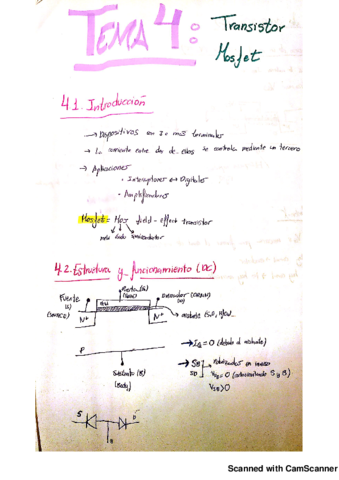 TEMA 4: Transistor
Mosfet
4.1. Introducción
→ Dispositivos con 3 o más terminales
→ La corriente entre dos de ellos se controla mediante un tercero
→ Aplicaciones
· Interruptores ↔ Digitales
· Amplificadores
Mosfet = Mos field-effect transistor
metal óxido semiconductor
4.2. Estructura y funcionamiento (DC)
Fuente
(S)
(SOURCE)
Puerta (G)
(Gate)
Drenador (DRAIN)
(D)
N+
N+
P
Sustrato (B)
(Body)
→ IG = 0 (debido al aislante)
→ SB
DB
polarizados en inversa
VSB = 0 (cortocircuitando S y B)
S
D
B